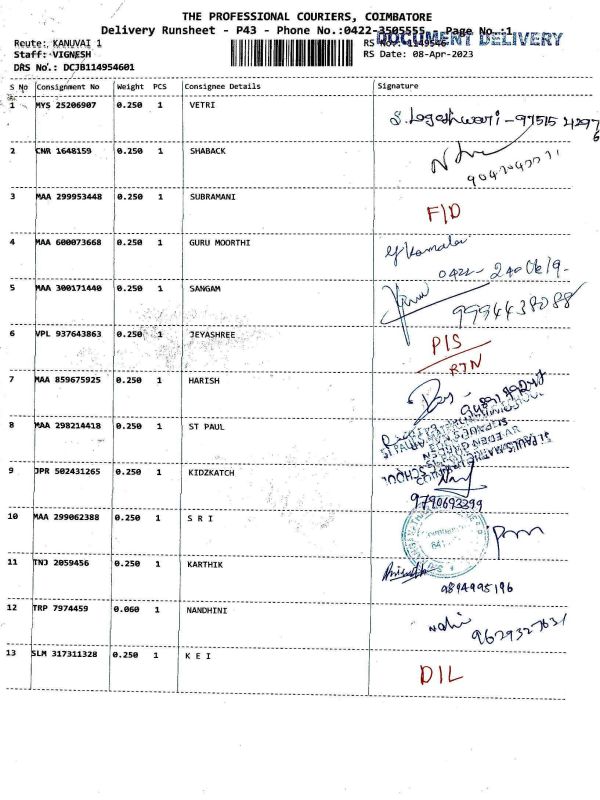 THE PROFESSIONAL COURIERS, COIMBATORE
Delivery Runsheet - P43 - Phone No.:0422-3505555, Page No.:1
DOCUMENT DELIVERY
Route: KANUVAI 1
RS No.: 1149546
Staff: VIGNESH
RS Date: 08-Apr-2023
DRS No.: DCJB114954601
S No Consignment No Weight PCS Consignee Details Signature
1 MYS 25206907 0.250 1 VETRI
2 CNR 1648159 0.250 1 SHABACK
3 MAA 299953448 0.250 1 SUBRAMANI F/D
4 MAA 600073668 0.250 1 GURU MOORTHI
5 MAA 300171440 0.250 1 SANGAM 9994438088
6 VPL 937643863 0.250 1 JEYASHREE P/S
RTN
7 MAA 859675925 0.250 1 HARISH
8 MAA 298214418 0.250 1 ST PAUL
9 JPR 502431265 0.250 1 KIDZKATCH
9790693399
10 MAA 299062388 0.250 1 S R I
11 TNJ 2059456 0.250 1 KARTHIK
9894995196
12 TRP 7974459 0.060 1 NANDHINI
9629327631
13 SLM 317311328 0.250 1 K E I D/L